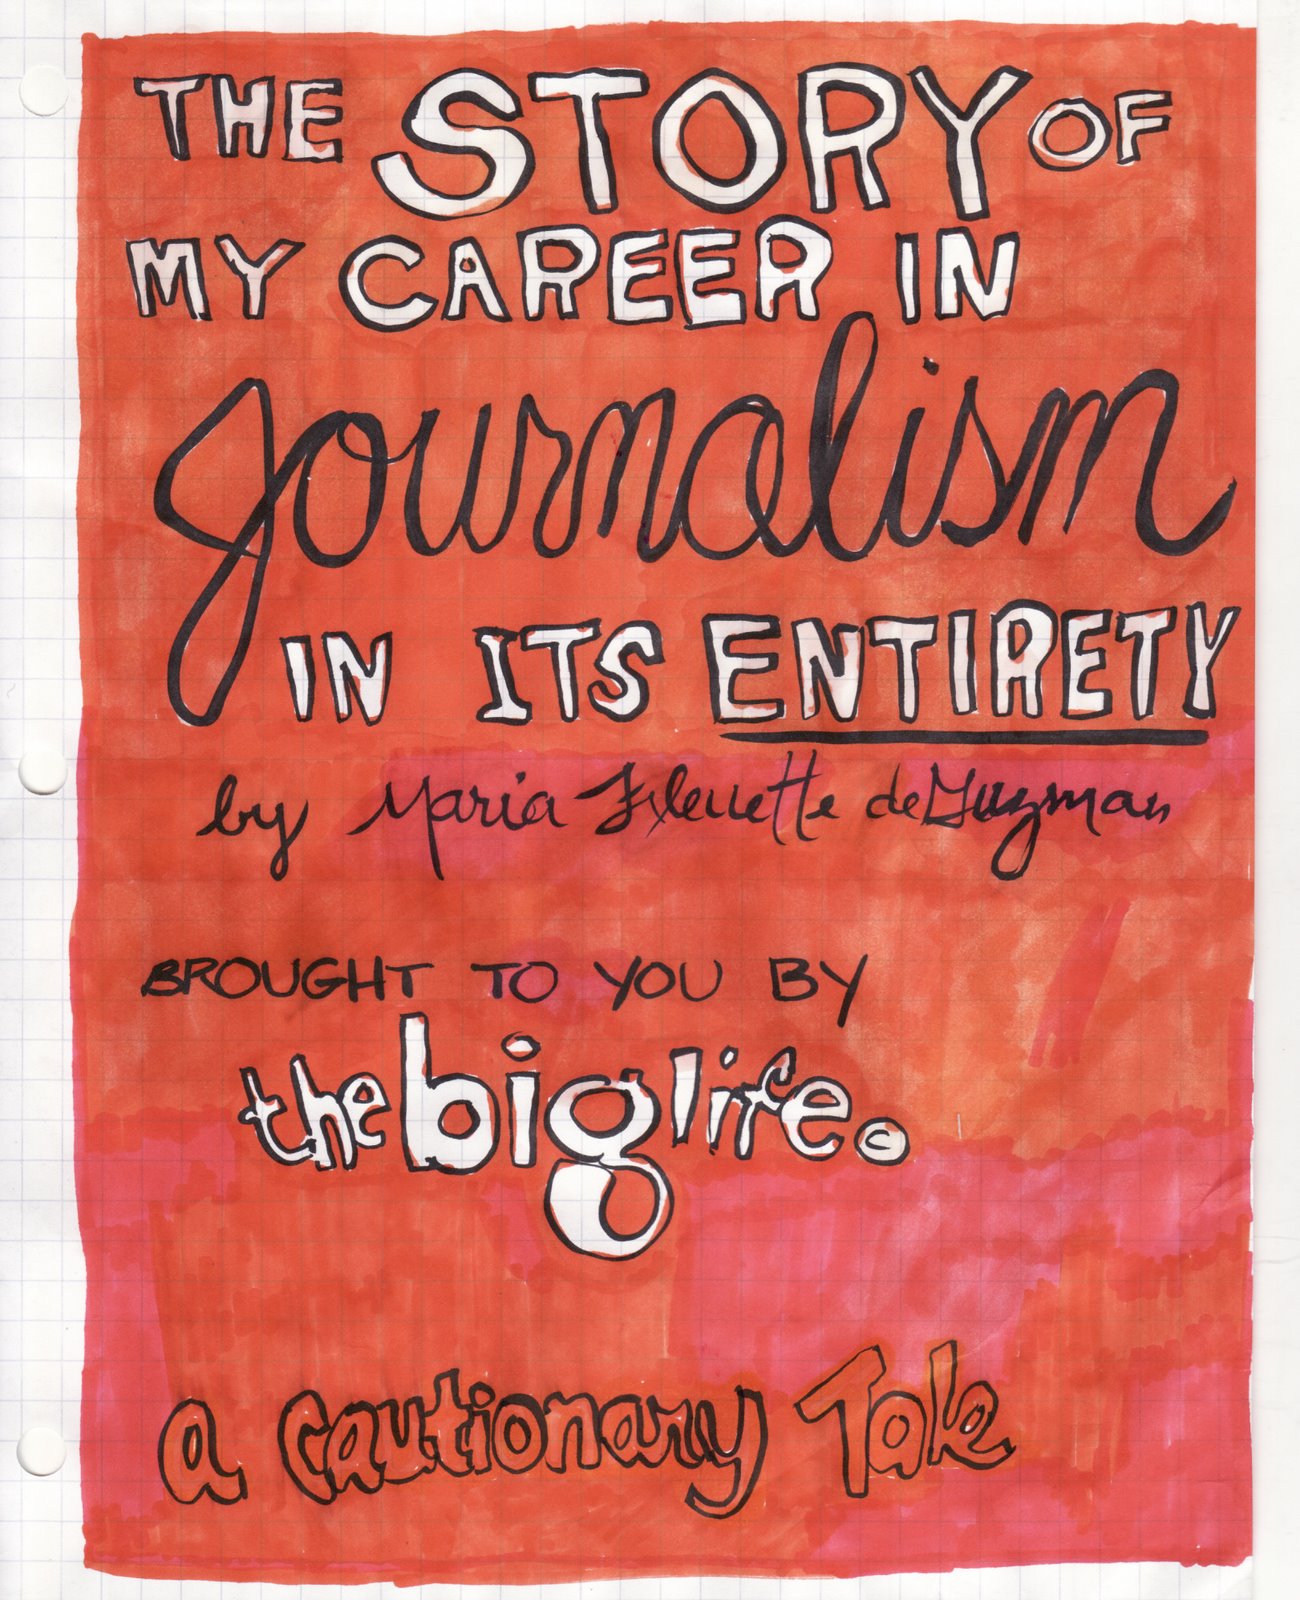 THE STORY OF
MY CAREER IN
Journalism
IN ITS ENTIRETY
by Maria Fleurette deGuzman
BROUGHT TO YOU BY
the big life. ©
a cautionary Tale